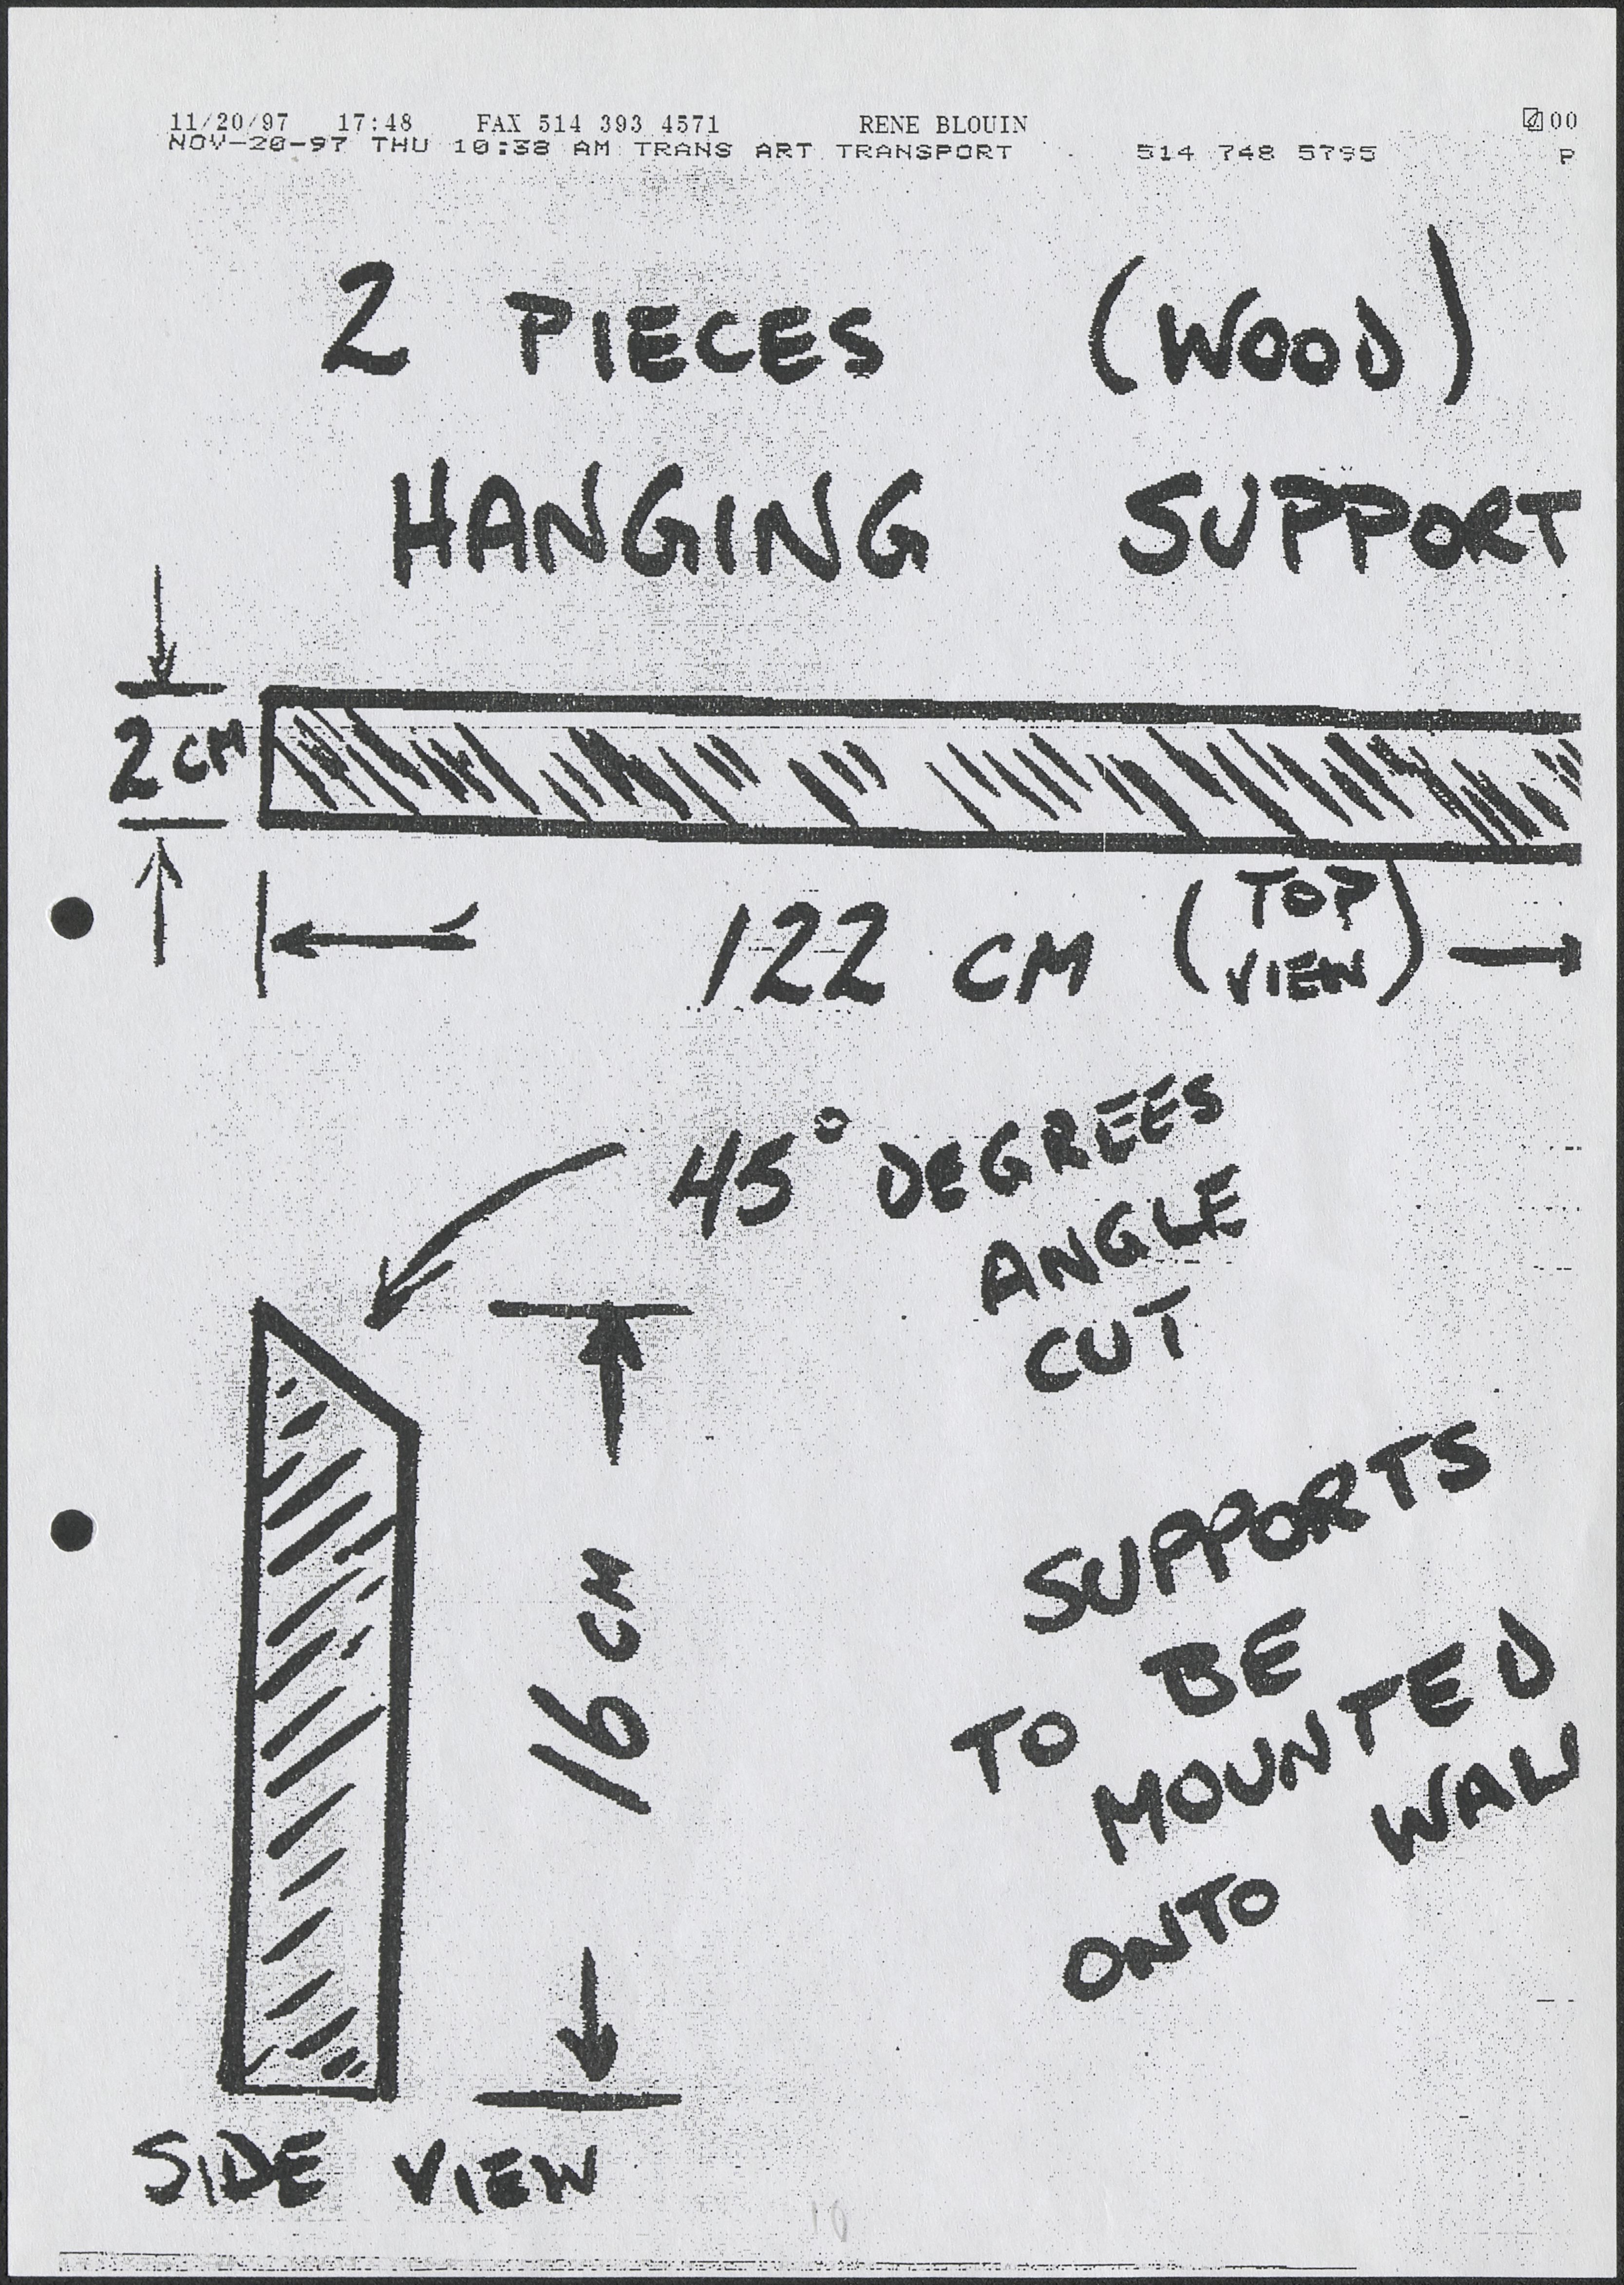 11/20/97 17:48 FAX 514 393 4571 RENE BLOUIN 00
NOV-20-97 THU 10:38 AM TRANS ART TRANSPORT 514 748 5795 P
2 PIECES (WOOD)
HANGING SUPPORT
2 CM
122 CM (TOP
VIEW)
45° DEGREES
ANGLE
CUT
16 CM
SUPPORTS
TO BE
MOUNTED
ONTO WALL
SIDE VIEW
10